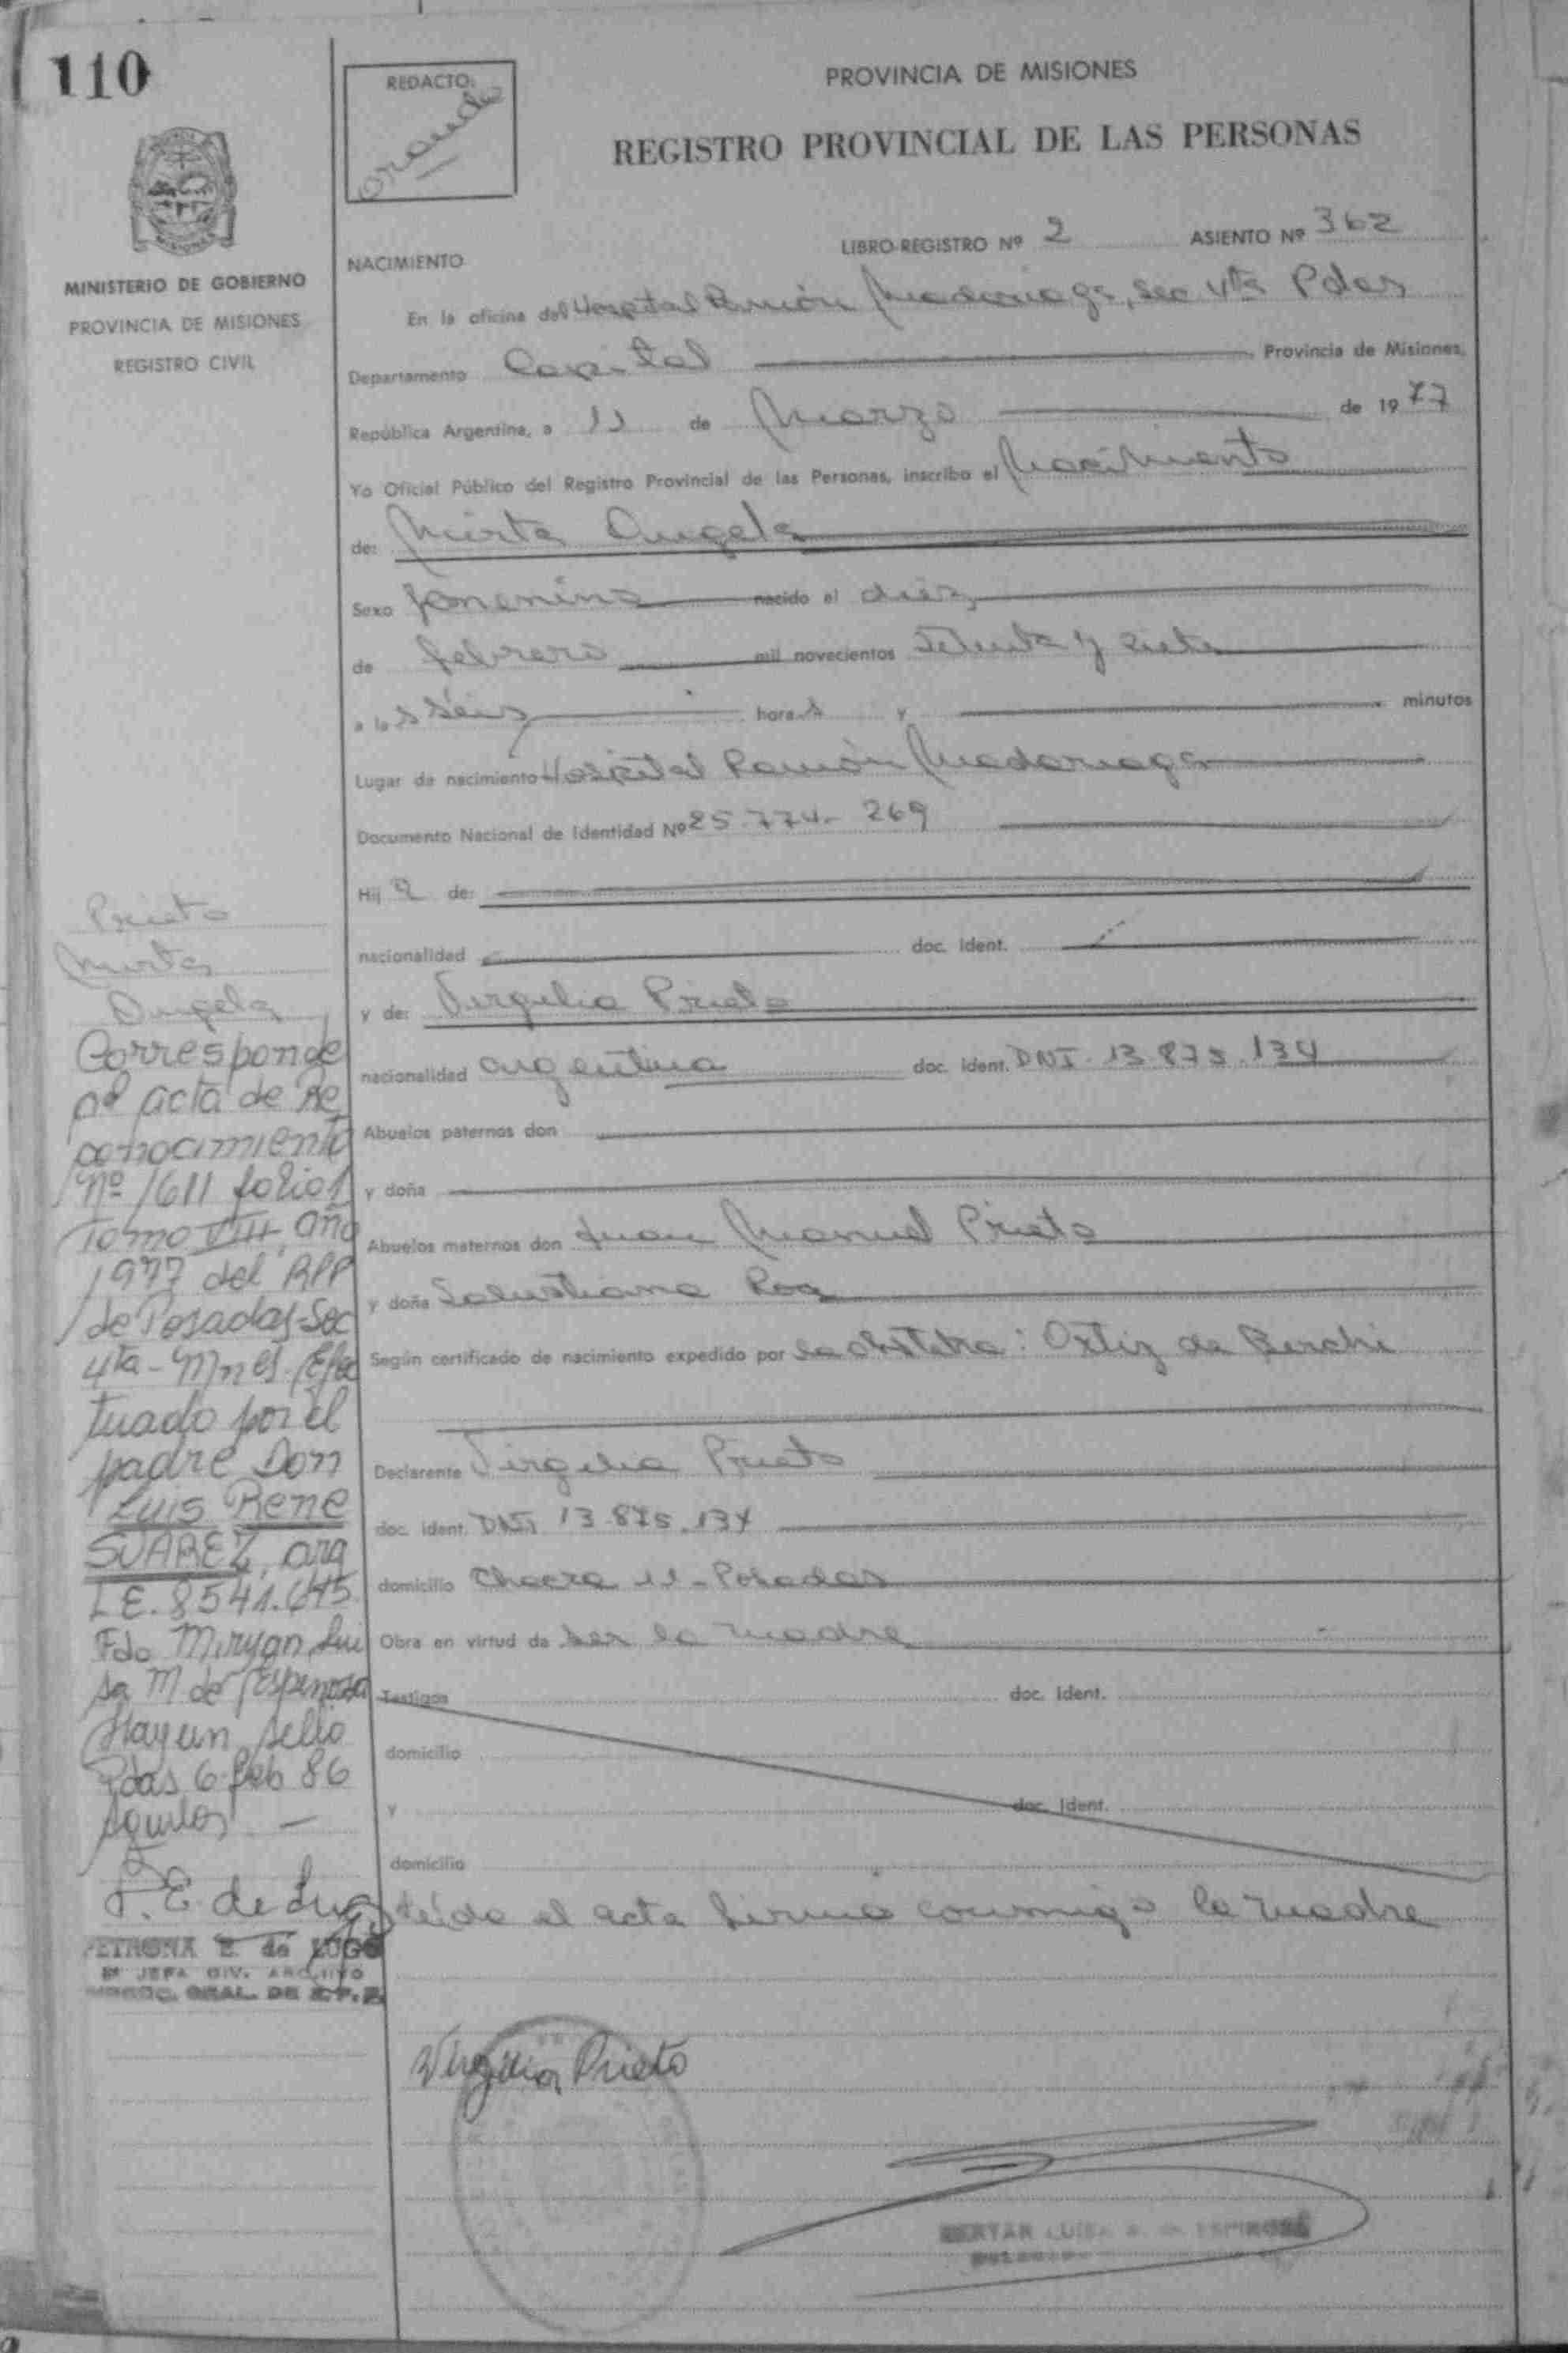 110
REDACTO:
PROVINCIA DE MISIONES
REGISTRO PROVINCIAL DE LAS PERSONAS
MINISTERIO DE GOBIERNO
PROVINCIA DE MISIONES
REGISTRO CIVIL
LIBRO-REGISTRO Nº 2 ASIENTO Nº 362
NACIMIENTO
En la oficina del Hospital Ramón Madariaga, Sec 4ta Pdas
Departamento Capital Provincia de Misiones,
República Argentina, a 11 de Marzo de 1977
Yo Oficial Público del Registro Provincial de las Personas, inscribo el Nacimiento
de: Mirta Angela
Sexo femenino nacido el diez
de febrero mil novecientos setenta y siete
a las seis horas y minutos
Lugar de nacimiento Hospital Ramón Madariaga
Documento Nacional de Identidad Nº 25.774.269
Hija de:
nacionalidad doc. ident.
y de: Virgilia Prieto
nacionalidad argentina doc. ident. DNI 13.875.134
Abuelos paternos don
y doña
Abuelos maternos don Juan Manuel Prieto
y doña Salustiana Roa
Según certificado de nacimiento expedido por la obstetra: Ortiz de Berchi
Declarente Virgilia Prieto
doc. ident. DNI 13.875.134
domicilio Chacra 11 - Posadas
Obra en virtud de ser la madre
Testigos doc. Ident.
domicilio
y doc. Ident.
domicilio
leída el acta firma conmigo la madre
Virgilia Prieto
Prieto
Mirta
Angela
Corresponde
al acta de Re
conocimiento
Nº 1611 folio 1
Tomo VIII, año
1977 del RPP
de Posadas-Sec
4ta-Mnes. Efec
tuado por el
padre Don
Luis Rene
SUAREZ, arg
L E. 8541.645
Fdo Miryan Lui
sa M de Espinosa
Hay un sello
Pdas 6 feb 86
P. E. de Lugo
PETRONA E. de LUGO
JEFA DIV. ARCHIVO
GRAL. DE R.P.P.
LUISA M. de ESPINOSA